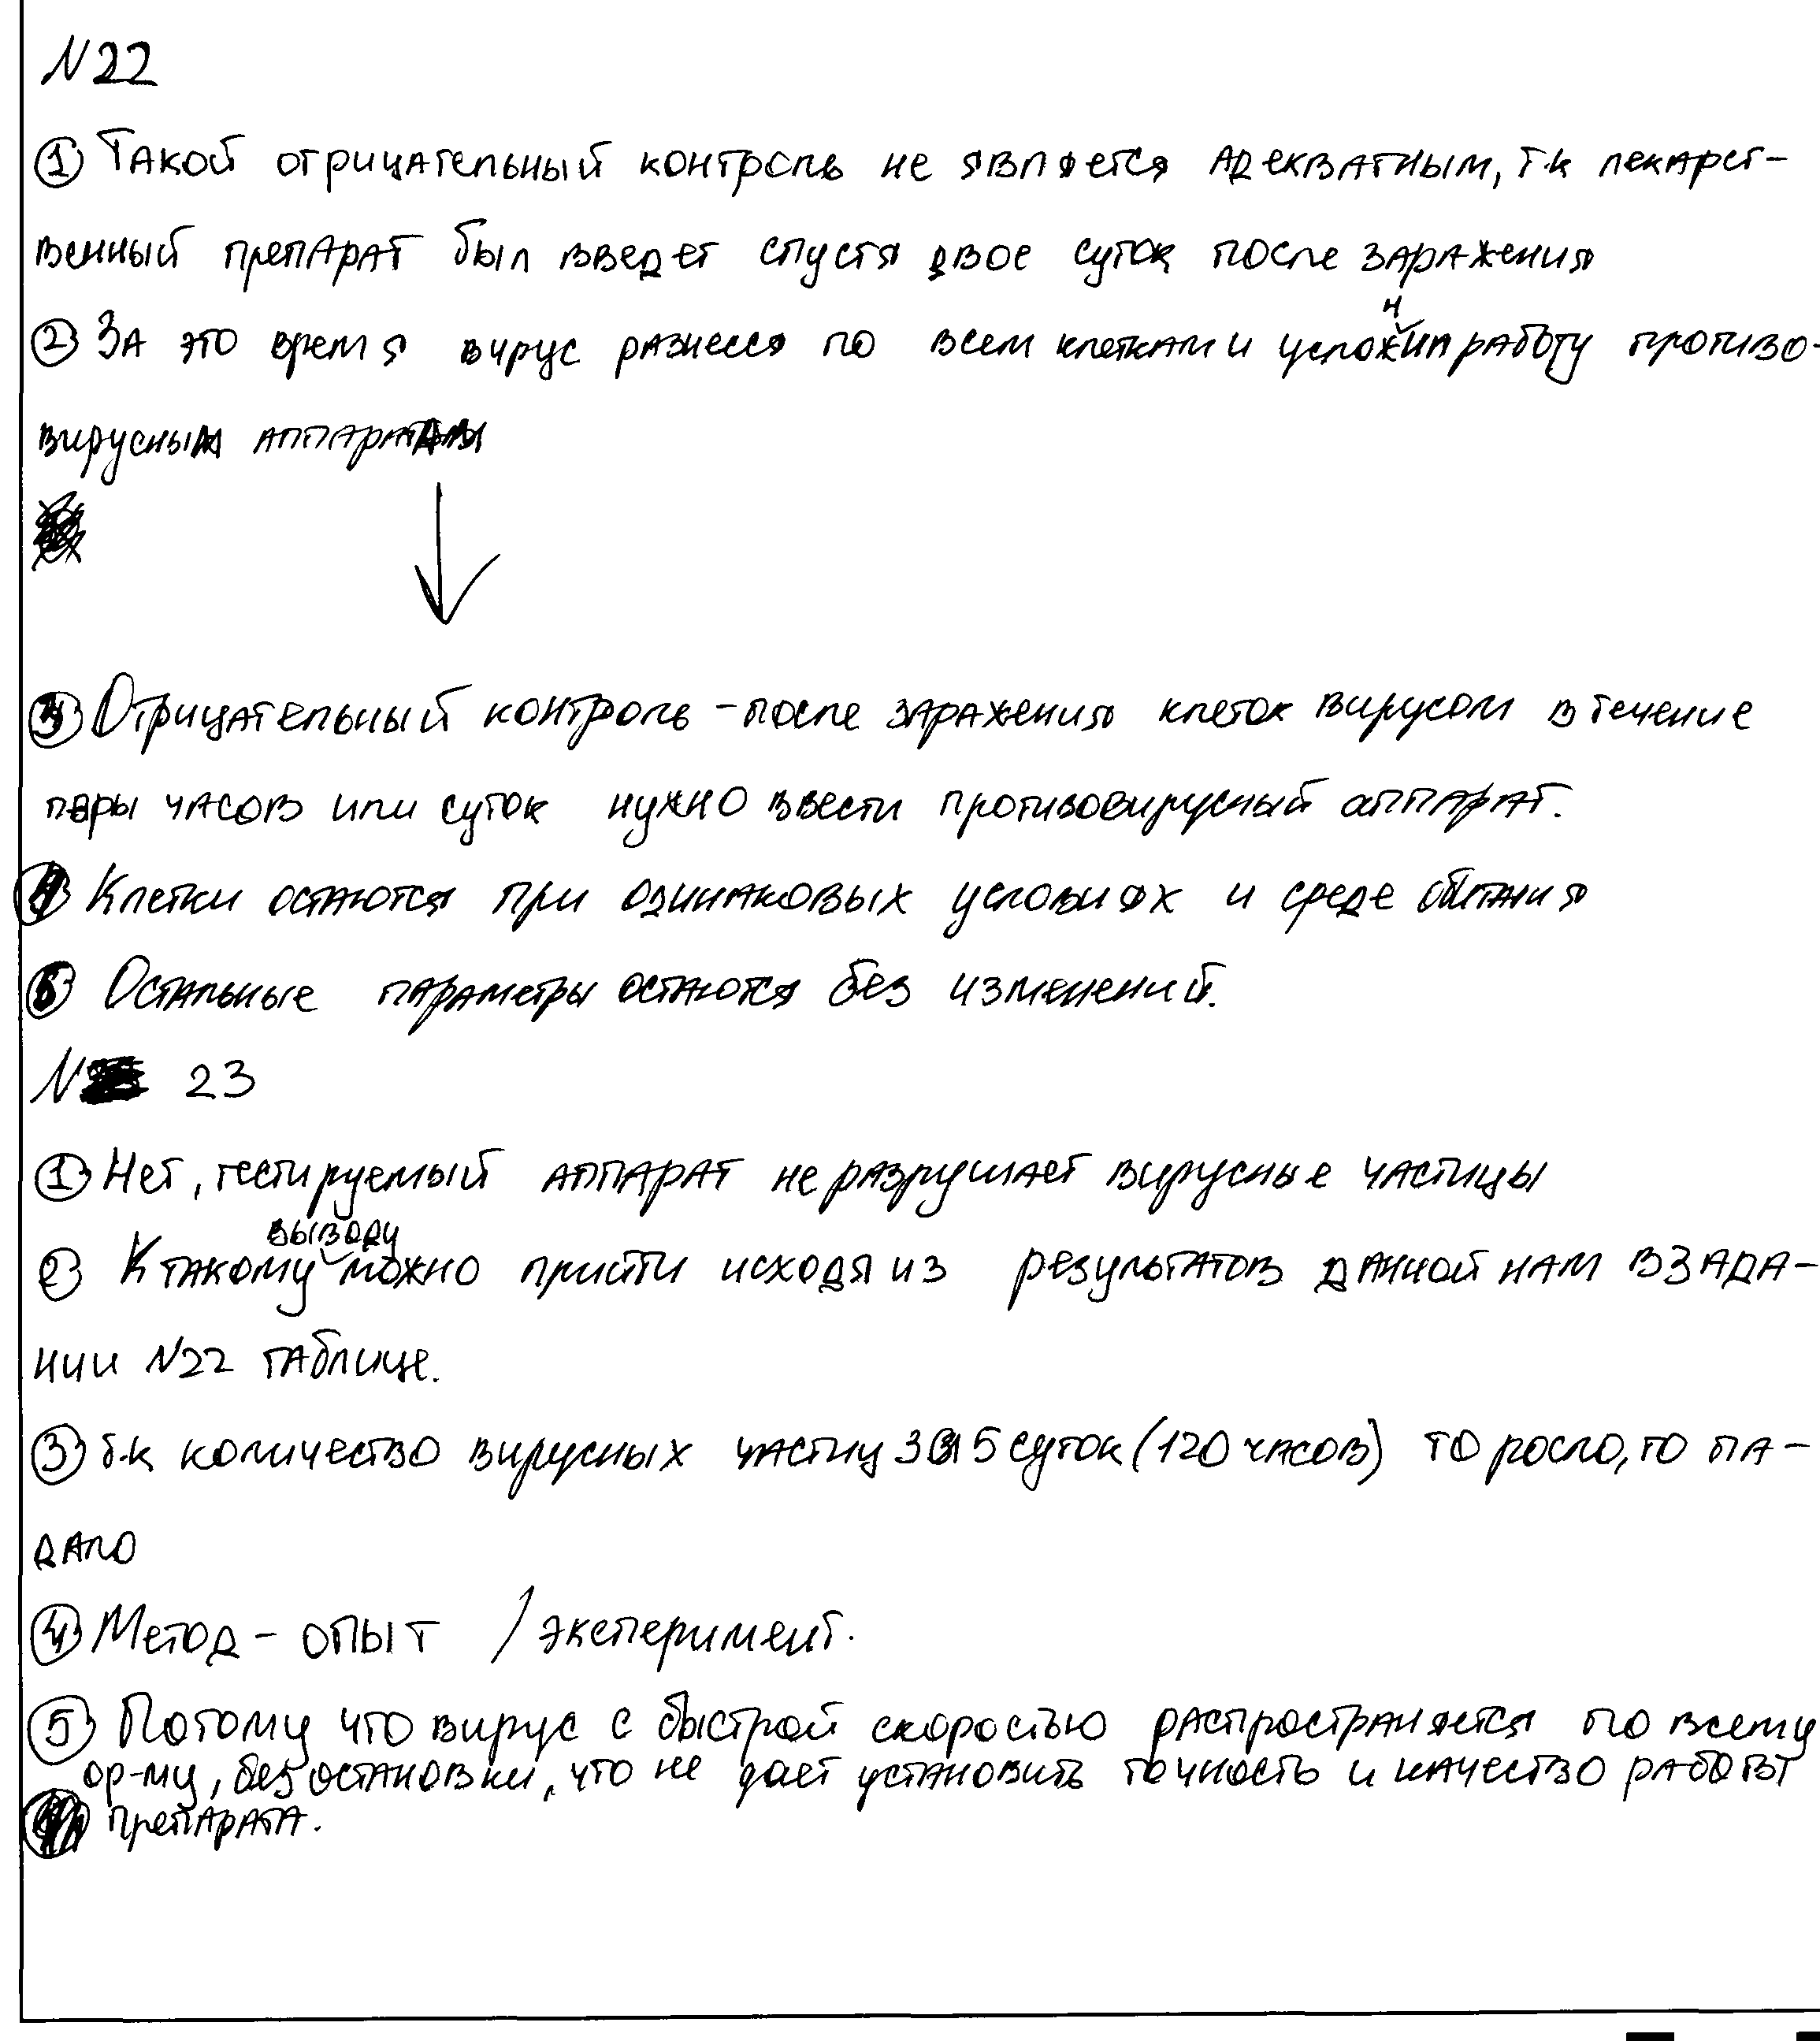 N22
① Такой отрицательный контроль не является адекватным, т.к лекарст-
венный препарат был введет спустя двое суток после заражения
② За это время вирус разнесся по всем клеткам и усложнил работу противо-
вирусным аппаратам
③ Отрицательный контроль - после заражения клеток вирусом в течение
пары часов или суток нужно ввести противовирусный аппарат.
④ Клетки остаются при одинаковых условиях и среде обитания
⑤ Остальные параметры остаются без изменений.
N 23
① Нет, тестируемый аппарат не разрушает вирусные частицы
② К такому выводу можно прийти исходя из результатов данной нам в зада-
нии N22 таблице.
③ т.к количество вирусных частиц за 5 суток (120 часов) то росло, то па-
дало
④ Метод - опыт / эксперимент.
⑤ Потому что вирус с быстрой скоростью распространяется по всему
ор-му, без остановки, что не дает установить точность и качество работы
препарата.